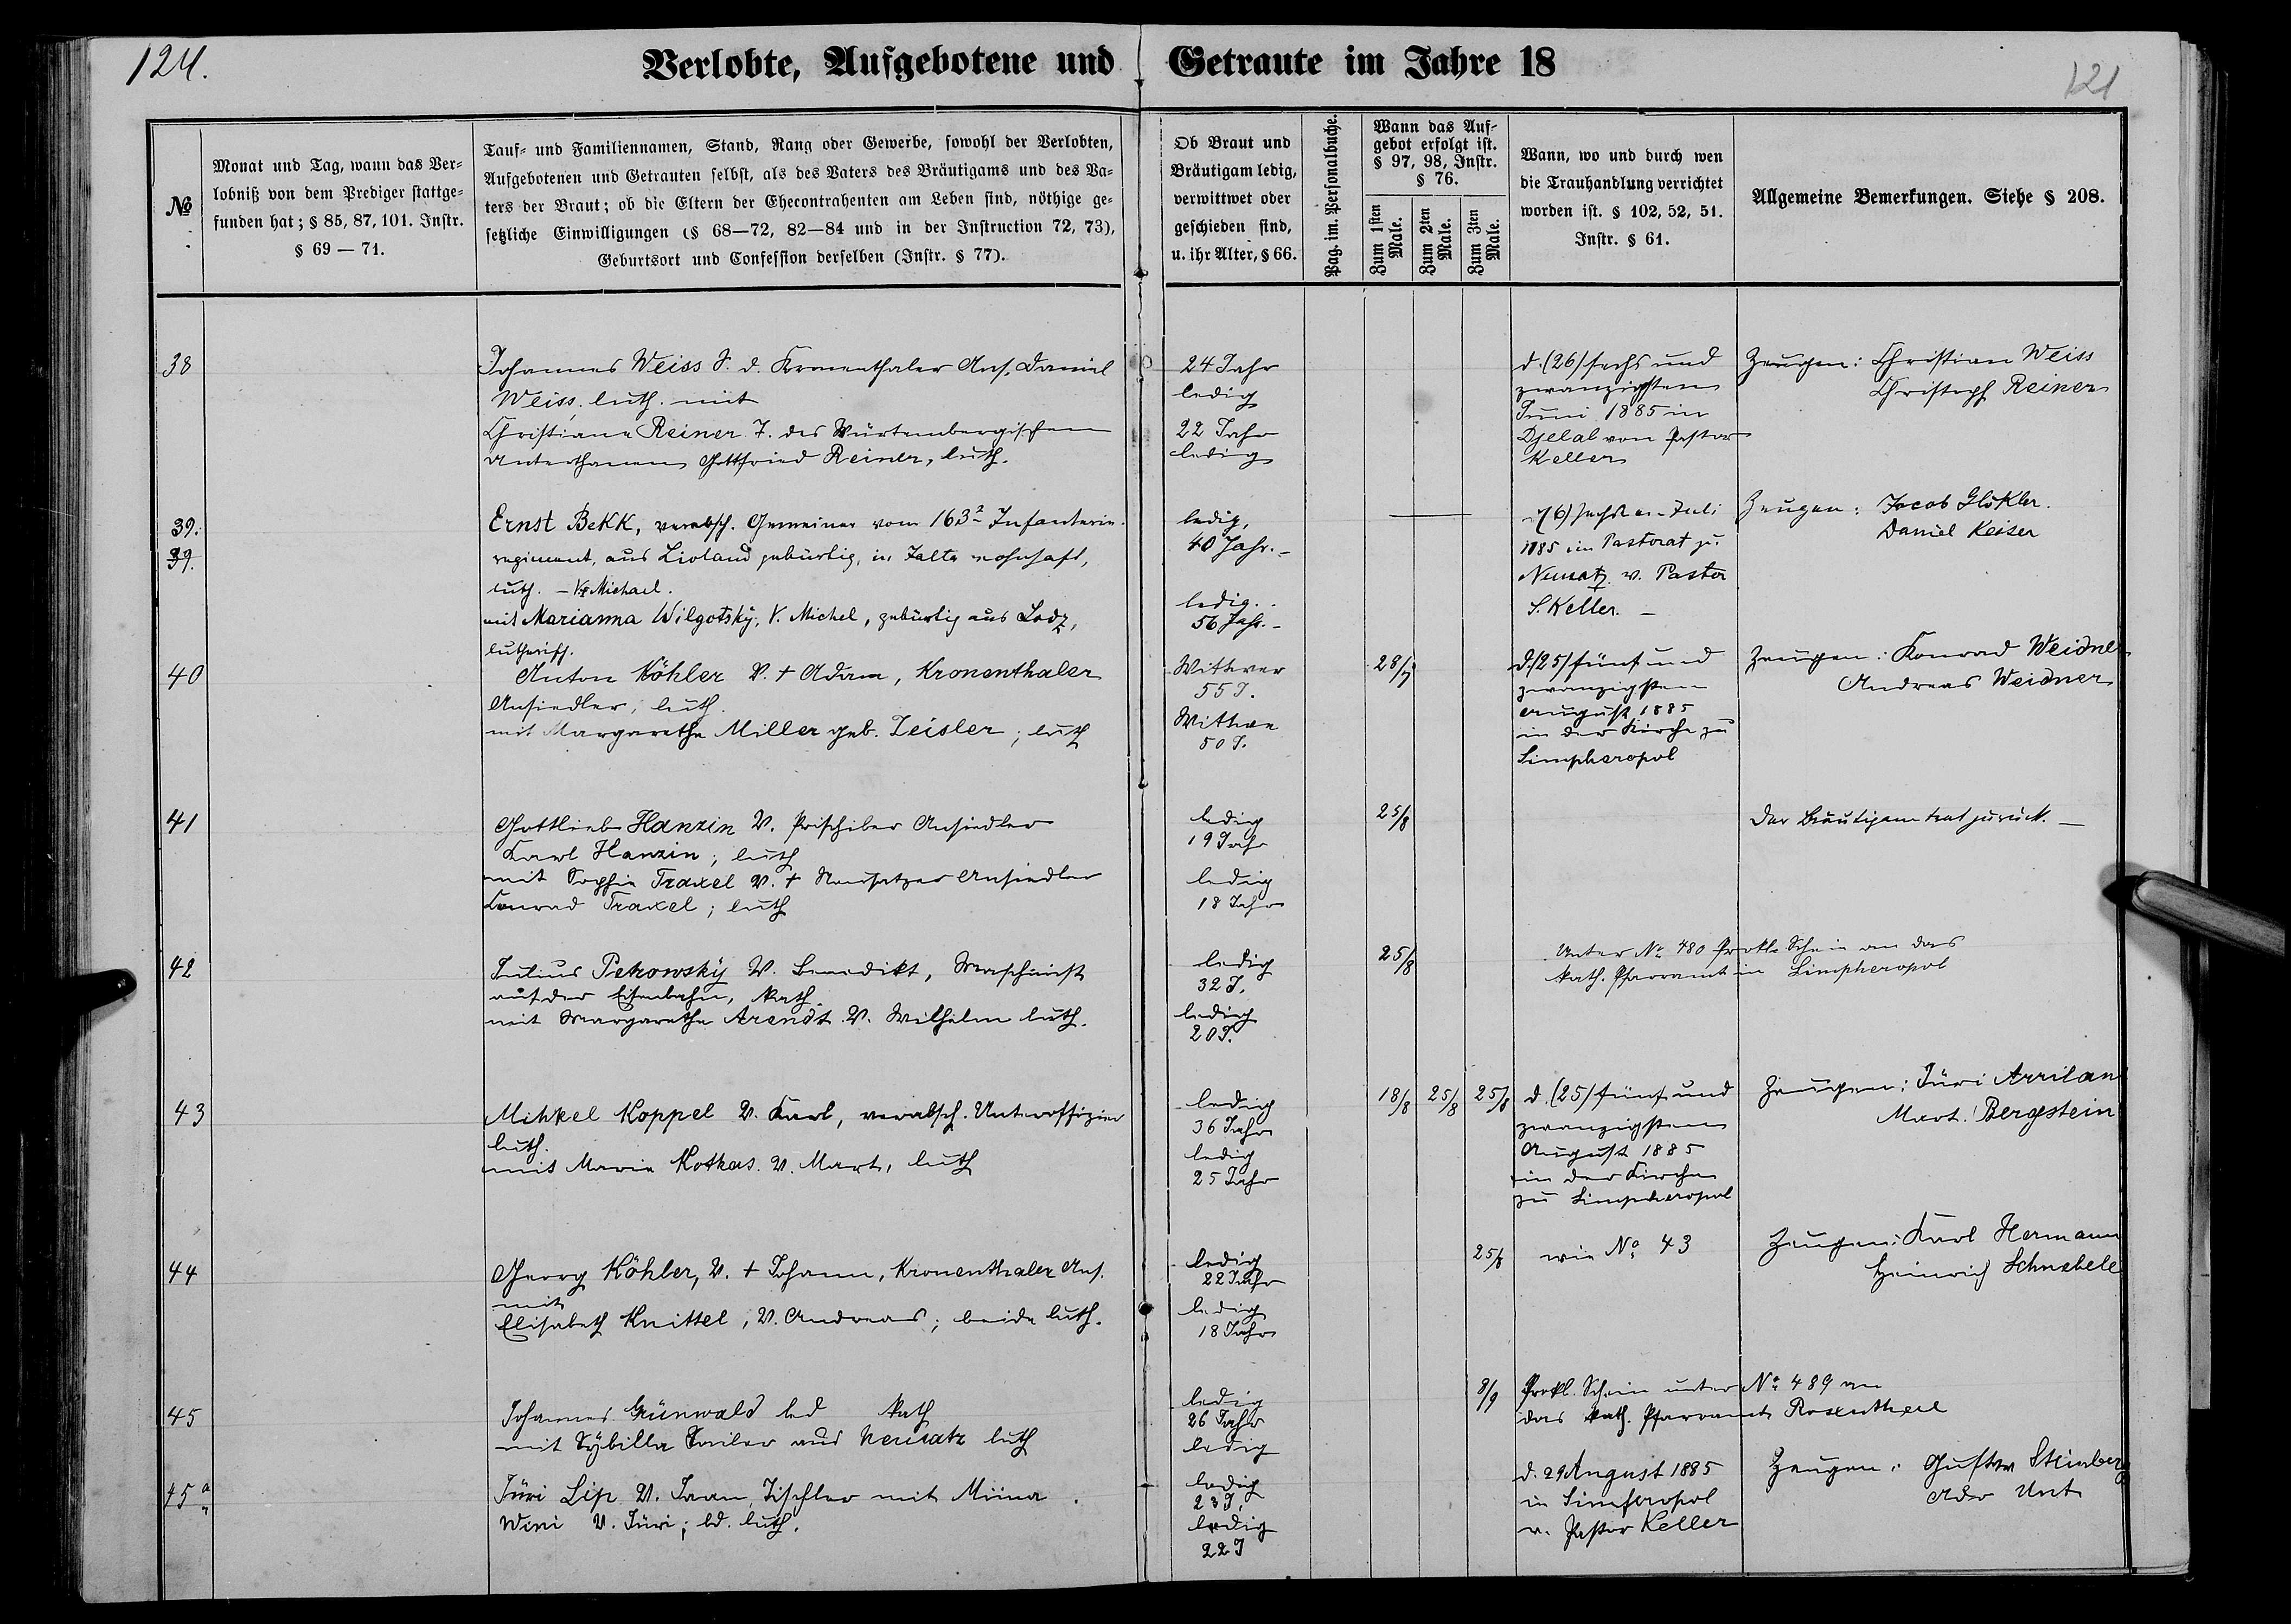 124.
Verlobte, Aufgebotene und Getraute im Jahre 18
121
№
Monat und Tag, wann das Ver-
lobniß von dem Prediger stattge-
funden hat; § 85, 87, 101. Instr.
§ 69 — 71.
Tauf- und Familiennamen, Stand, Rang oder Gewerbe, sowohl der Verlobten,
Aufgebotenen und Getrauten selbst, als des Vaters des Bräutigams und des Va-
ters der Braut; ob die Eltern der Ehecontrahenten am Leben sind, nöthige ge-
setzliche Einwilligungen (§ 68—72, 82—84 und in der Instruction 72, 73),
Geburtsort und Confession derselben (Instr. § 77).
Ob Braut und
Bräutigam ledig,
verwittwet oder
geschieden sind,
u. ihr Alter, § 66.
Pag. im. Personalbuche.
Wann das Auf-
gebot erfolgt ist.
§ 97, 98, Instr.
§ 76.
Zum 1sten
Male.
Zum 2ten
Male.
Zum 3ten
Male.
Wann, wo und durch wen
die Trauhandlung verrichtet
worden ist. § 102, 52, 51.
Instr. § 61.
Allgemeine Bemerkungen. Siehe § 208.
38
Johannes Weiss S. d. Kronenthaler Ans. Daniel
Weiss, luth. mit
Christiana Reiner T. des Würtembergischen
Unterthanen Gottfried Reiner, luth.
24 Jahr
ledig
22 Jahr
ledig
d. (26) sechs und
zwanzigsten
Juni 1885 in
Djelal von Pastor
Keller
Zeugen: Christian Weiss
Christoph Reiner
39.
39.
Ernst Bekk, verabsch. Gemeiner vom 163 Infanterie-
regiment, aus Livland gebürtig, in Jalta wohnhaft,
luth. – V. Michael.
mit Marianna Wilgotsky, V. Michel, gebürtig aus Lodz,
lutherisch.
ledig,
40 Jahr. –
ledig. –
56 Jahr. –
(6) sechsten Juli
1885 im Pastorat zu
Neusatz v. Pastor
S. Keller. –
Zeugen: Jacob Glökler.
Daniel Keiser
40
Anton Köhler V. + Adam, Kronenthaler
Ansiedler, luth.
mit Margaretha Miller geb. Zeisler; luth
Wittwer
55 J.
Wittwe
50 J.
28/7
d. (25) fünf und
zwanzigsten
August 1885
in der Kirche zu
Simpheropol
Zeugen: Konrad Weidner
Andreas Weidner
41
Gottlieb Hanzin V. Prischiber Ansiedler
Karl Hanzin; luth
mit Sophie Traxel V. + Neusatzer Ansiedler
Conrad Traxel; luth
ledig
19 Jahr
ledig
18 Jahr
25/8
Der Bräutigam trat zurück. –
42
Julius Petrowsky V. Benedikt, Maschinist
auf der Eisenbahn, kath.
mit Margaretha Arendt V. Wilhelm luth.
ledig
32 J.
ledig
20 J.
25/8
Unter No 480 Prokl. Schein an das
kath. Pfarramt in Simpheropol
43
Mihkel Koppel V. Karl, verabsch. Unteroffizier
luth.
mit Marie Kotkas. V. Mart, luth
ledig
36 Jahr
ledig
25 Jahr
18/8 25/8 25/8
d. (25) fünf und
zwanzigsten
August 1885
in der Kirche
zu Simpheropol
Zeugen: Jüri
Mart. Bergstein
44
Georg Köhler, V. + Johann, Kronenthaler Ans.
mit
Elisabeth Knittel, V. Andreas; beide luth.
ledig
22 Jahr
ledig
18 Jahr
25/8
wie No 43
Zeugen: Karl Hermann
Heinrich Schnabele
45
Johannes Grünwald led kath
mit Sybilla aus Neusatz luth
ledig
26 Jahr
ledig
8/9
Prokl. Schein unter No 489 an
das kath. Pfarramt Rosenthal
45 a
Jüri Lip V. Jaan, Tischler mit Miina
Wini V. Jüri; bd. luth.
ledig
23 J.
ledig
22 J
d. 29 August 1885
in Simferopol
v. Pastor Keller
Zeugen: Gustav Steinberg
Ado Unt